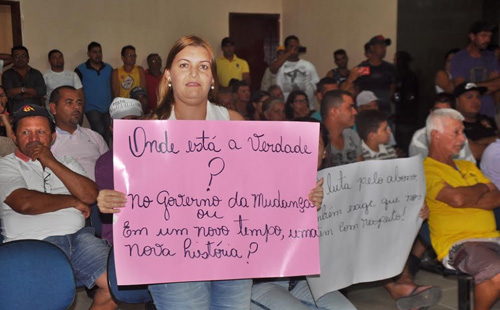 Onde está a Verdade
?
No Governo da Mudança
ou
Em um novo tempo, uma
nova história?
luta pelo abono
também exige que nos
com respeito!